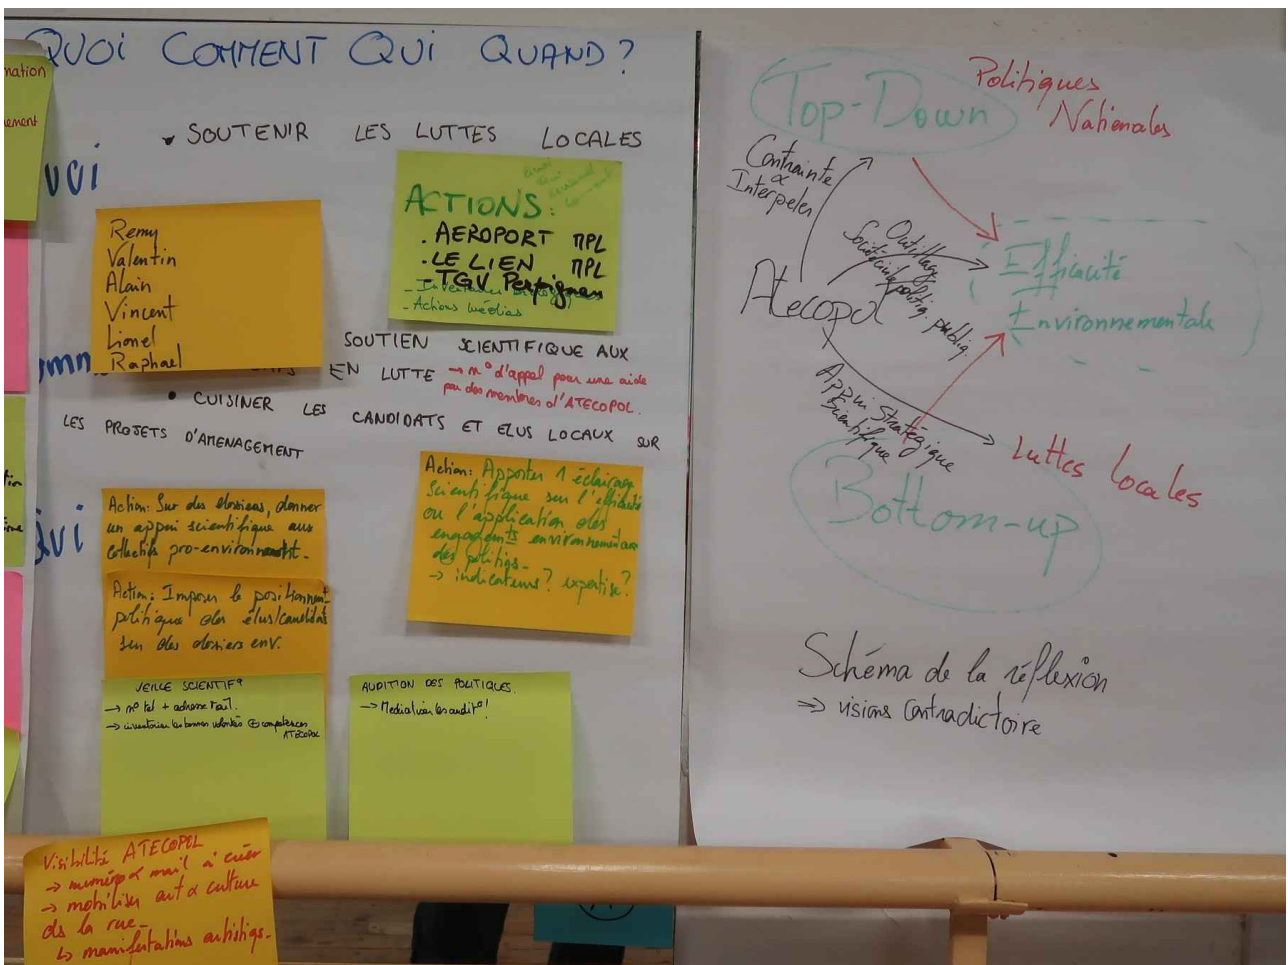 QUOI COMMENT QUI QUAND?
mation
ement
• SOUTENIR LES LUTTES LOCALES
UOI
Remy
Valentin
Alain
Vincent
Lionel
Raphael
ACTIONS:
. AEROPORT MPL
. LE LIEN MPL
- TGV Perpignan
- Actions médias
SOUTIEN SCIENTIFIQUE AUX
EN LUTTE → n° d'appel pour une aide
par des membres d'ATECOPOL.
• CUISINER LES CANDIDATS ET ELUS LOCAUX SUR
LES PROJETS D'AMENAGEMENT
QUI
Action: Sur des dossiers, donner
un appui scientifique aux
collectifs pro-environnemt.
Action: Imposer le positionnemt
politique des élus/candidats
sur des dossiers env.
Action: Apporter 1 éclairage
scientifique sur l'efficacité
ou l'application des
engagements environnementaux
des politiqs-
→ indicateurs? expertise?
VEILLE SCIENTIF°
→ n° tel + adresse mail.
→ inventorier les bonnes volontés ⊕ compétences
ATECOPOL
AUDITION DES POLITIQUES.
→ Médialiser les audit°!
Visibilité ATECOPOL
→ numéro & mail à créer
→ mobiliser art & culture
ds la rue-
↳ manifestations artistiqs-
Top-Down
Politiques
Nationales
Contrainte
&
Interpeler
Outillage
Atecopol
Efficacité
Environnementale
Appui Stratégique
Scientifique
Luttes locales
Bottom-up
Schéma de la réflexion
⇒ visions contradictoire